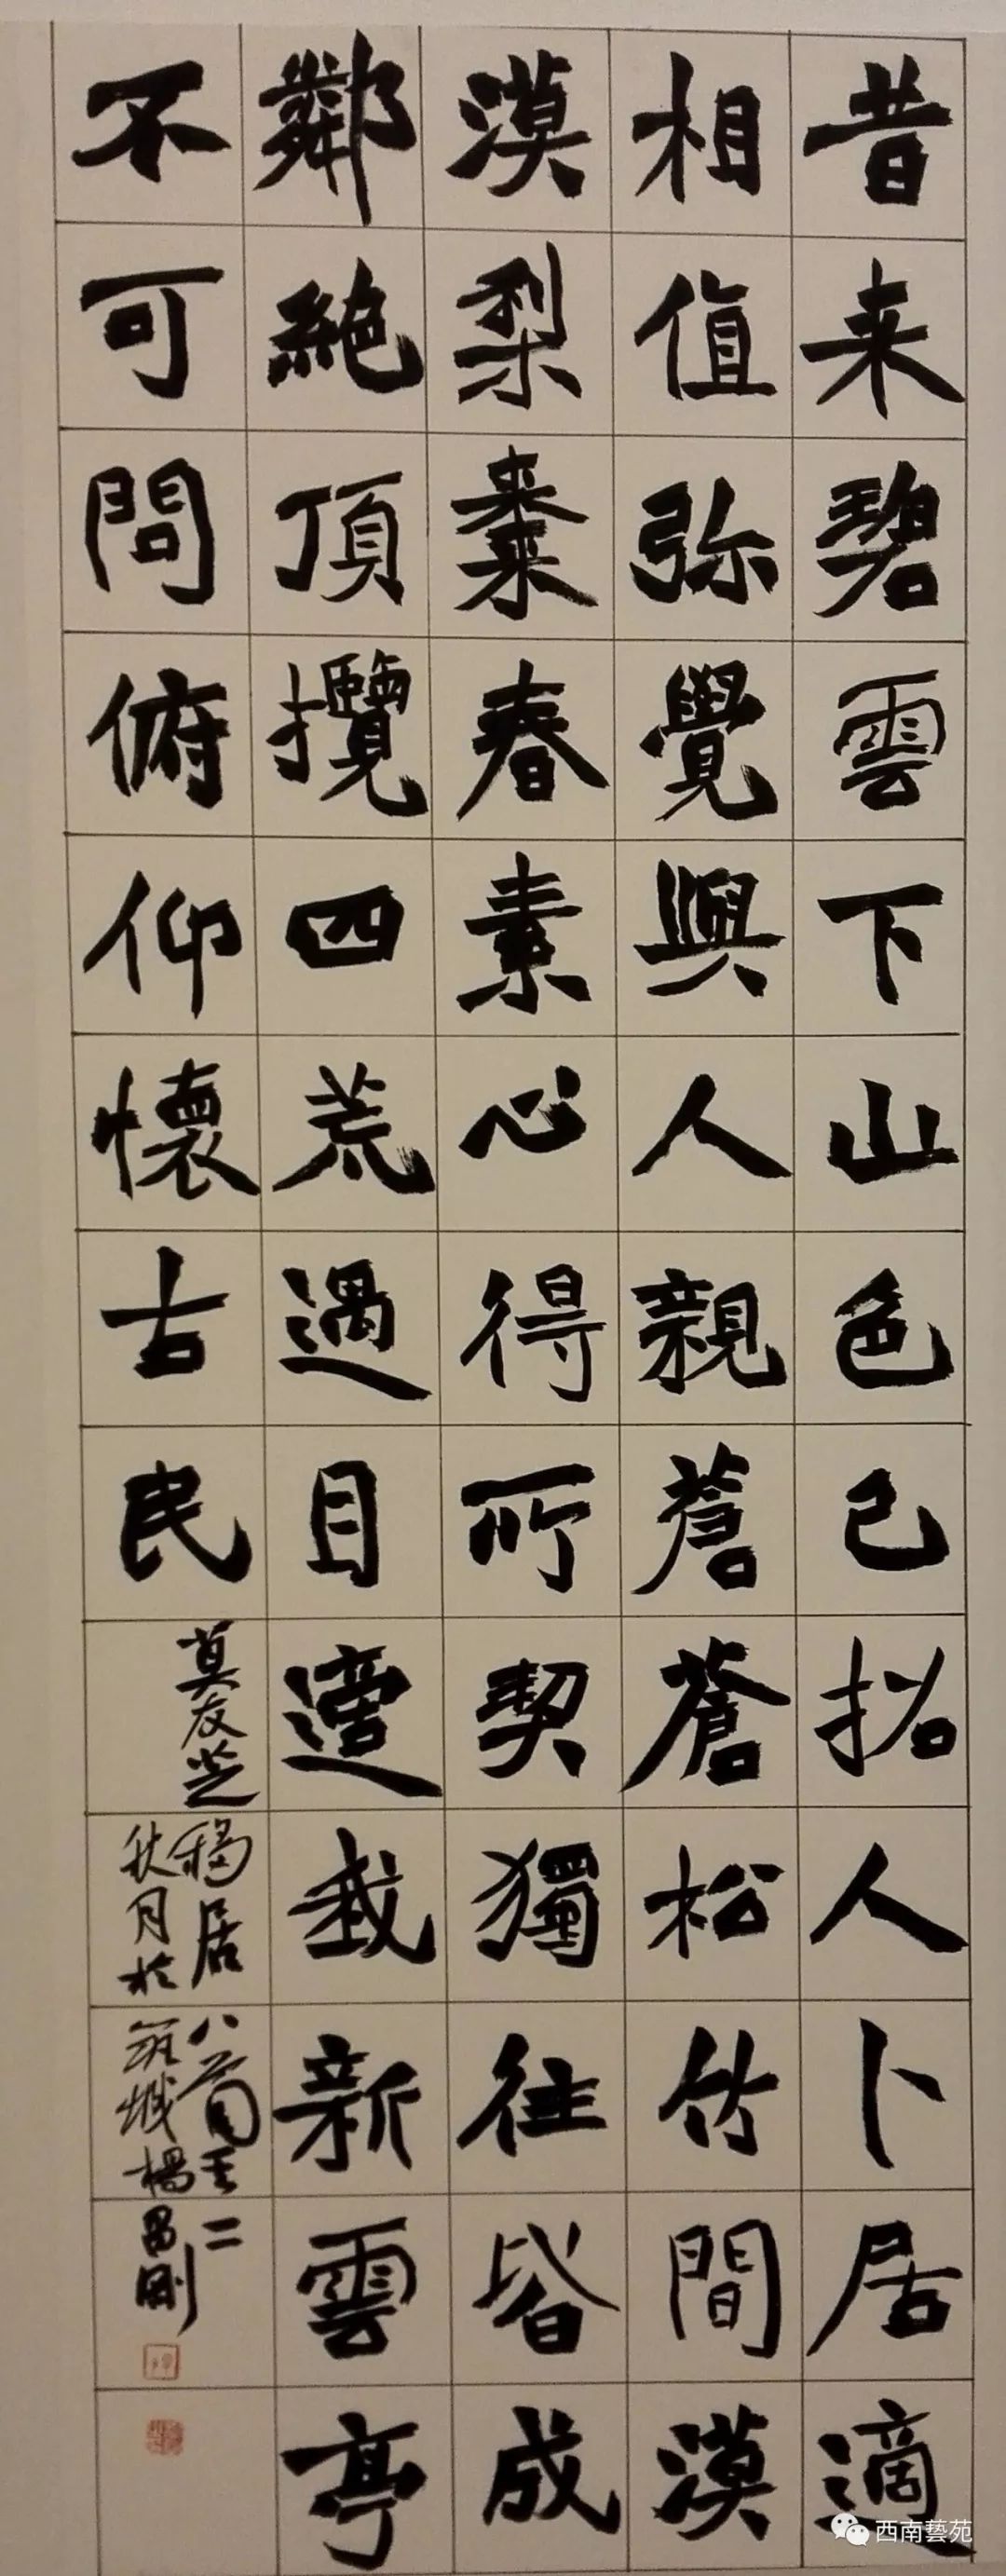 昔来碧雲下山色已招人卜居適
相值弥覺興人親蒼蒼松竹間漠
漠梨棗春素心得所契獨往皆成
鄰絕頂攬四荒遇目遠我新雲亭
不可問俯仰懷古民
莫友芝移居八首其二
秋月於筑城楊昌剛
西南藝苑